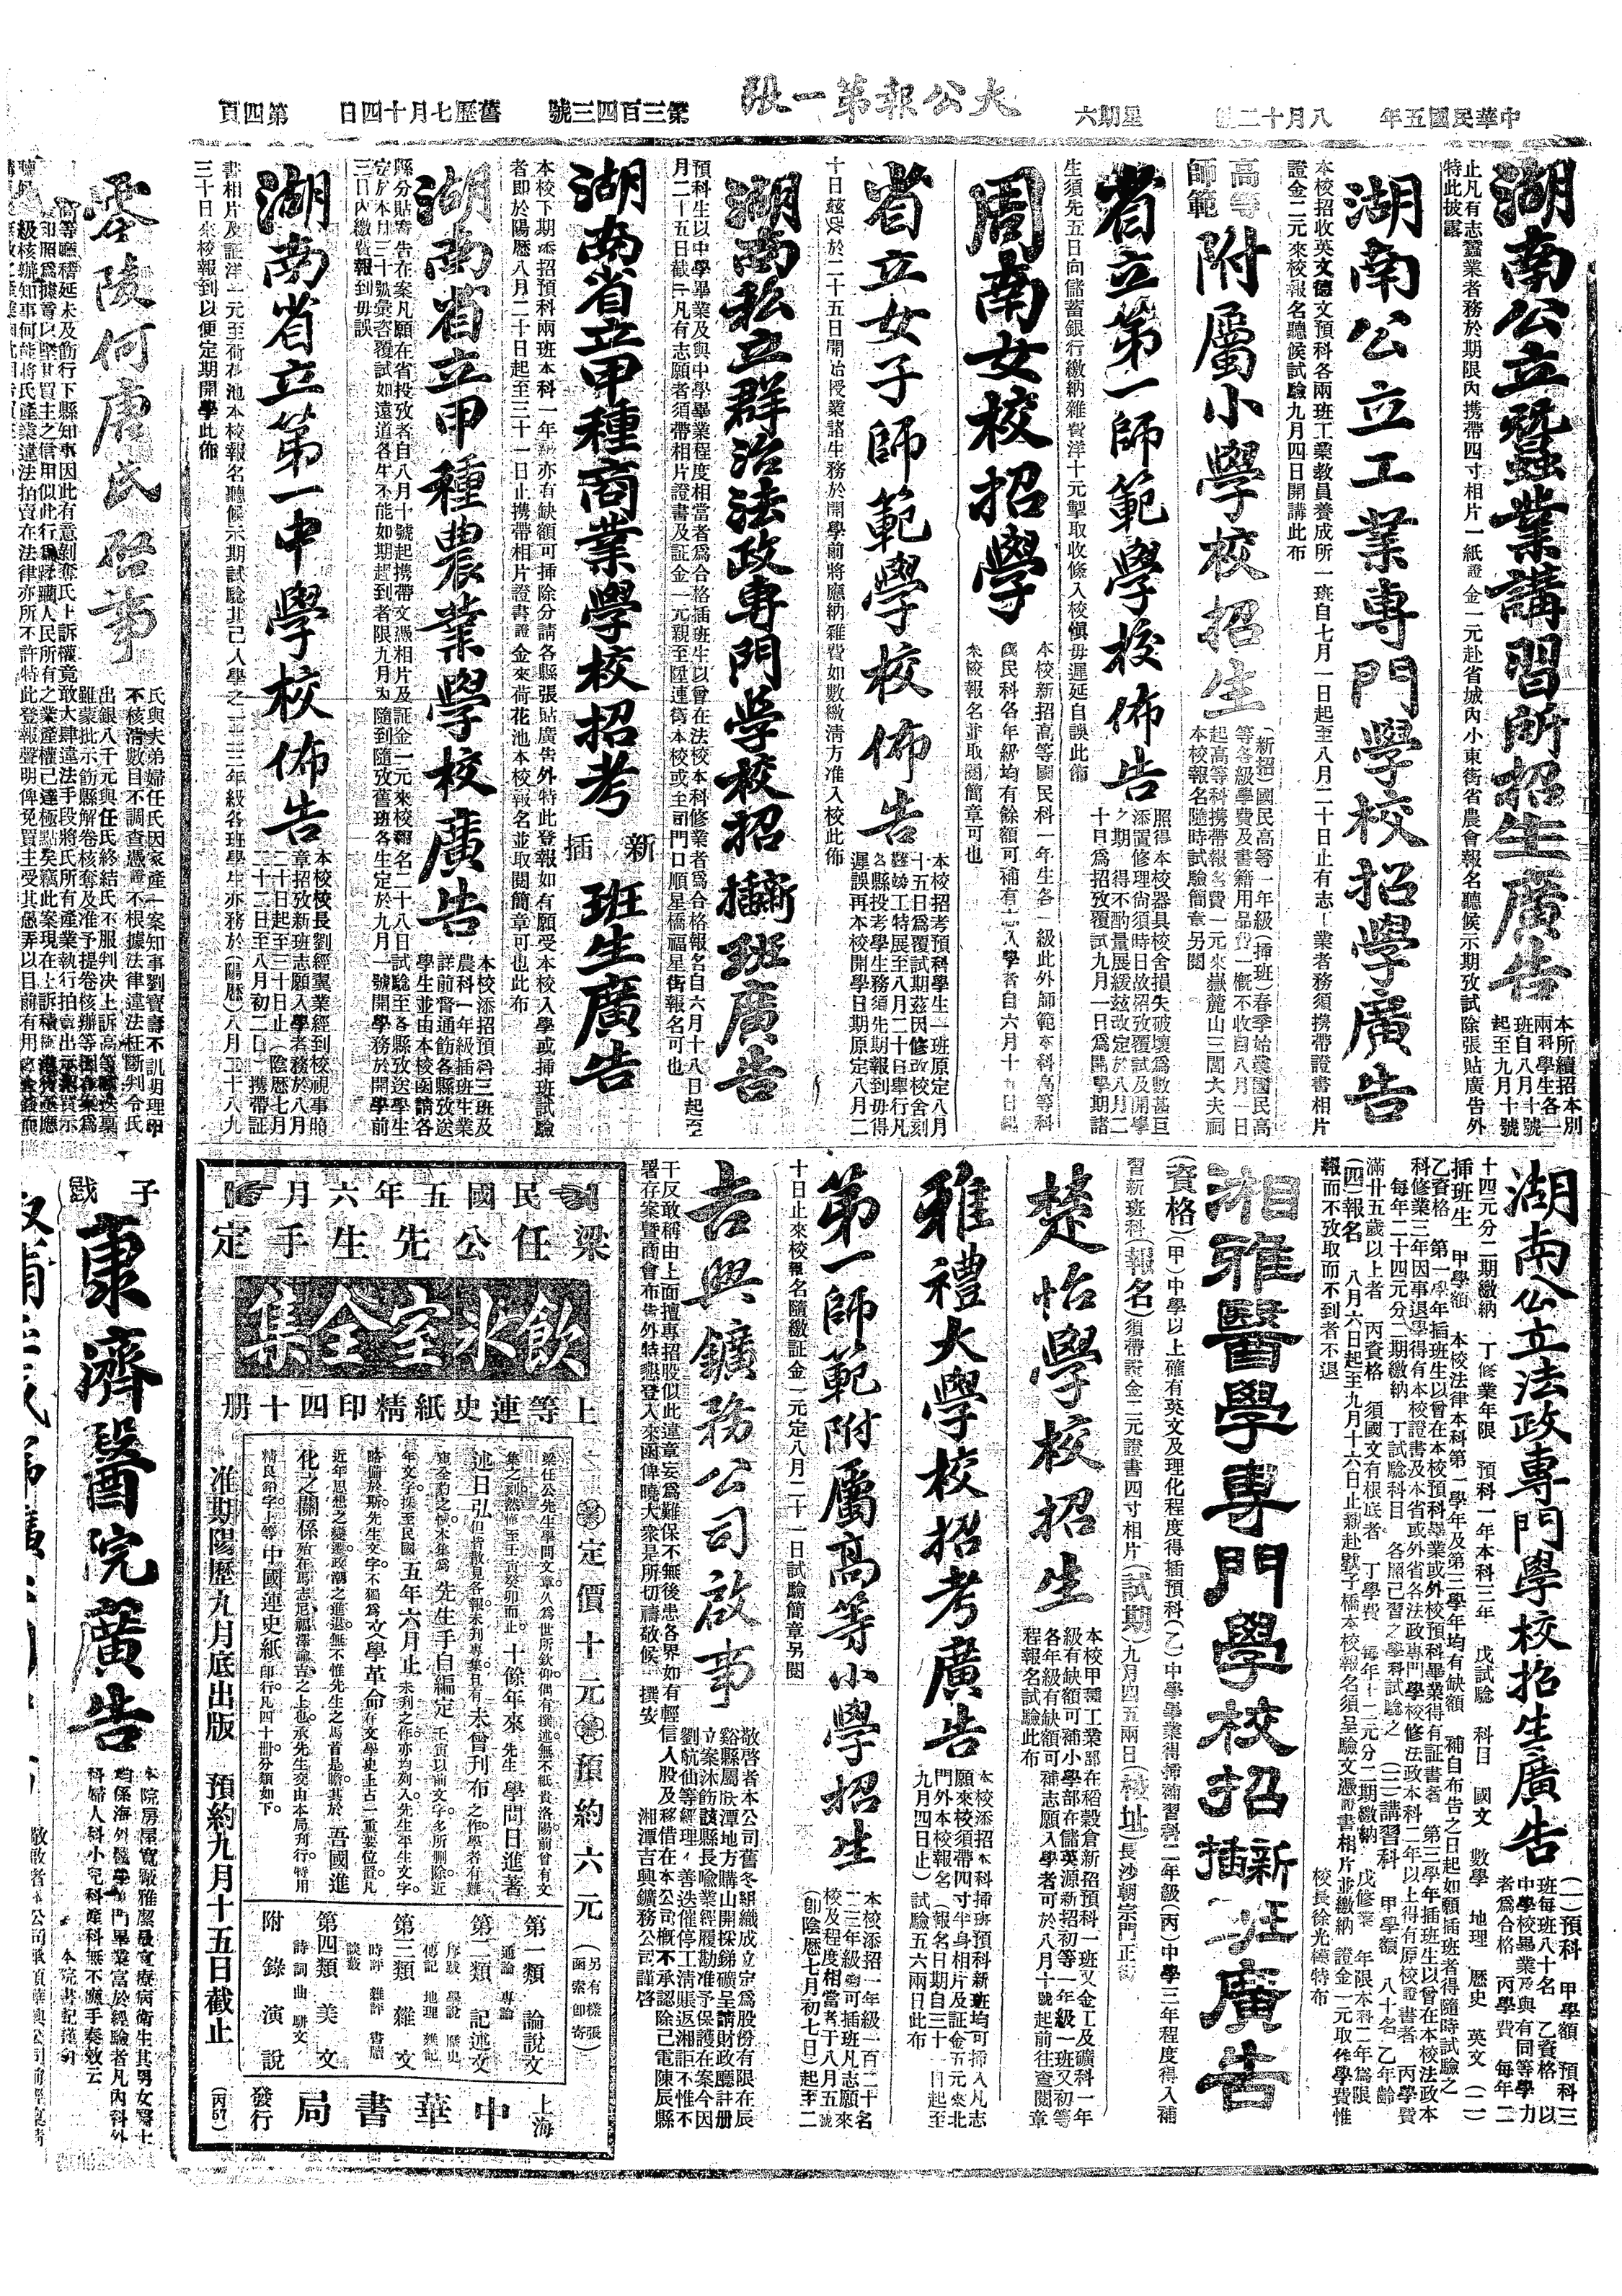 中華民國五年
八月十二
星期六
大公報第一張
第三百四十三號
舊歷七月十四日
第四頁
湖南公立蠶業講習所招生廣告
本所續招本別
兩科學生各一
班自八月十號
起至九月十號
止凡有志蠶業者務於期限內携帶四寸相片一紙證金一元赴省城內小東街省農會報名聽候示期攷試除張貼廣告外
特此披露
湖南公立工業專門學校招學廣告
本校招收英文德文預科各兩班工業教員養成所一班自七月一日起至八月二十日止有志工業者務須携帶證書相片
證金二元來校報名聽候試驗九月四日開講此布
高等師範附屬小學校招生
(新招)國民高等一年級(插班)春季始業國民高
等各級學費及書籍用品費一概不收自八月一日
起高等科携帶報名費一元來嶽麓山三閭大夫祠
本校報名隨時試驗簡章另閱
省立第一師範學校佈告
照得本校器具校舍損失破壞為數甚巨
添置修理尚須時日故招攷覆試及開學
之期不得不酌量展緩茲改定於八月二
十日為招攷覆試九月一日為開學期諸
生須先五日向儲蓄銀行繳納雜費洋十元掣取收條入校愼毋遲延自誤此佈
周南女校招學
本校新招高等國民科一年生各一級此外師範本科高等科
國民科各年級均有餘額可補有志入學者自六月十日起
來校報名並取閱簡章可也
省立女子師範學校佈告
本校招考預科學生一班原定八月
十五日為覆試期茲因修改校舍刻
難竣工特展至八月二十日舉行凡
各縣投考學生務須先期報到毋得
遲誤再本校開學日期原定八月二
十日茲展於二十五日開始授業諸生務於開學前將應納雜費如數繳清方准入校此佈
湖南私立群治法政專門學校招新插班廣告
預科生以中學畢業及與中學畢業程度相當者為合格插班生以曾在法校本科修業者為合格報名自六月十八日起至
月二十五日截止凡有志願者須帶相片證書及証金一元親至隍連街本校或至司門口順星橋福星街報名可也
湖南省立甲種商業學校招考新插班生廣告
本校下期添招預科兩班本科一年級亦有缺額可挿除分請各縣張貼廣告外特此登報如有願受本校入學或揷班試驗
者即於陽歷八月二十日起至三十一日止携帶相片證書證金來荷花池本校報名並取閱簡章可也此布
湖南省立甲種農業學校廣告
本校添招預科三班及
農科一年級插班生業
詳前督通飭各縣攷送
學生並由本校函請各
縣分貼廣告在案凡願在省投攷者自八月十號起携帶文憑相片及証金一元來校報名二十八日試驗至各縣攷送學生
定於本月三十號彙咨覆試如遠道各生不能如期趕到者限九月內隨到隨攷舊班各生定於九月一號開學務於開學前
三日內繳費報到毋誤
湖南省立第一中學校佈告
本校校長劉經翼業經到校視事照
章招攷新班志願入學者務於八月
二十日起至三十日止(陰歷七月
二十二日至八月初二日)携帶証
書相片及証洋一元至荷花池本校報名聽候示期試驗其已入學之一二三年級各班學生亦務於(陽歷)八月二十八九
三十日來校報到以便定期開學此佈
零陵何唐氏啓事
氏與夫弟婦任氏因家產一案知事劉寶壽不訊明理曲
不核清數目不調查憑證不根據法律違法枉斷判令氏
出銀八千元與任氏終結氏不服判决上訴高等
雖蒙批示飭縣解卷核奪及准予提卷核辦等
高等廳稽延未及飭行下縣知事因此有意剝奪氏上訴權竟敢大肆違法手段將氏所有產業執行拍賣出示
級核辦知事何能將氏產業違法拍賣在法律亦所不許特此登報聲明俾免買主受其愚弄以目前有用之金錢而
湖南公立法政專門學校招生廣告
(一)預科 甲學額 預科三
班每班八十名 乙資格 以
中學校畢業及與有同等學力
者為合格 丙學費 每年二
十四元分二期繳納 丁修業年限 預科一年本科三年 戊試驗 科目 國文 數學 地理 歷史 英文 (二)
挿班生 甲學額 本校法律本科第一學年及第三學年均有缺額 補自布告之日起如願插班者得隨時試驗之
乙資格 第一學年插班生以曾在本校預科畢業或外校預科畢業得有証書者 第三學年插班生以曾在本校法政本
科修業三年因事退學得有本校證書及本省或外省各法政專門學校修法政本科二年以上得有原校證書者 丙學費
每年二十四元分二期繳納 丁試驗科目 各照已習之學科試驗之 (三)講習科 甲學額 八十名 乙年齡
滿廿五歲以上者 丙資格 須國文有根底者 丁學費 每年十二元分二期繳納 戊修業 年限本科二年為限
(四)報名 八月六日起至九月十六日止齋赴貢子橋本校報名須呈驗文憑證書相片並繳納 證金一元取作學費惟
報而不攷取而不到者不退
校長徐光德特布
湘雅醫學專門學校招新插班廣告
(資格)(甲)中學以上確有英文及理化程度得插預科(乙)中學畢業得揷補習科二年級(丙)中學三年程度得入補
習新班科(報名)須帶證金二元證書四寸相片(試期)九月四五兩日(校址)長沙朝宗門正街
楚怡學校招生
本校甲種工業部在稻穀倉新招預科一班又金工及礦科一年
級有缺額可補小學部在儲英源新招初等一年級一班又初等
各年級有缺額可補志願入學者可於八月十號起前往查閱章
程報名試驗此布
雅禮大學校招考廣告
本校添招本科挿班預科新班均可揷入凡志
願來校須帶四寸半身相片及証金五元來北
門外本校報名(報名日期自三十一日起至
九月四日止)試驗五六兩日此布
第一師範附屬高等小學招生
本校添招一年級一百二十名
二三年級均可插班凡志願來
校及程度相當者于八月五號
(卽陰歷七月初七日)起至二
十日止來校報名隨繳証金一元定八月二十一日試驗簡章另閱
吉興鑛務公司啟事
敬啓者本公司舊冬組織成立定為股份有限在辰
谿縣屬㰦潭地方購山開採銻礦呈請財政廳註册
立案沐飭該縣長喩業經履勘准予保護在案今因
劉航仙等經理不善迭催停工清賬返湘詎不惟不
干反敢稱由上面擅專招股似此違章妄為難保不無後患各界如有輕信人股及移借在本公司槪不承認除已電陳辰縣
署存案曁商會布告外特懇登入來函俾曉大衆是所切禱敬候 撰安
湘潭吉興鑛務公司謹啓
民國五年六月
梁任公先生手定
飲冰室全集
上等連史紙精印四十册
定價十元
預約六元
(另有樣張函索卽寄)
梁任公先生學問文章久為世所欽仰偶有撰述無不紙貴洛陽前曾有文
集之刻然僅至壬寅癸卯而止十餘年來先生學問日進著
述日弘但皆散見各報未刋專集且有未曾刋布之作學者有難
窺全豹之憾本集為先生手自編定壬寅以前文字多所刪除近
年文字採至民國五年六月止未刋之作亦均列入先生平生文字
略備於斯先生文字不獨為文學革命在文學史上占一重要位置凡
近年思想之變遷政潮之進退無不惟先生之馬首是瞻其於吾國進
化之關係殆在馬志尼福澤諭吉之上也承先生交由本局刋行特用
精良鉛字上等中國連史紙印行凡四十册分類如下
第一類 論說文
通論 專論
第二類 記述文
序跋 學說 歷史
傳記 地理 雜記
第三類 雜文
時評 雜評 書牘
談叢
第四類 美文
詩詞曲 駢文
附錄 演說
准期陽歷九月底出版 預約九月十五日截止
上海
中華書局
發行
(丙57)
子戥
康濟醫院廣告
本院房屋寬敞雅潔最宜療病衛生其男女醫士
均係海外醫學專門畢業富於經驗者凡內科外
科婦人科小兒科產科無不應手奏效云
本院書記謹啓